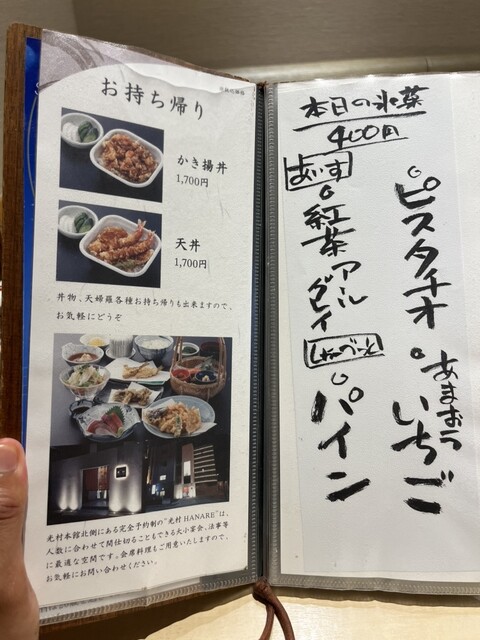 お持ち帰り
かき揚丼
1,700円
天丼
1,700円
丼物、天婦羅各種お持ち帰りも出来ますので、
お気軽にどうぞ
光村本館北側にある完全予約制の"光村HANARE"は、
人数に合わせて間仕切ることもできる大小宴会、法事等
に最適な空間です。会席料理もご用意いたしますので、
お気軽にお問い合わせください。
本日の氷菓
400円
あいす
紅茶アールグレイ
ピスタチオ
しゃーべっと
パイン
あまおう
いちご